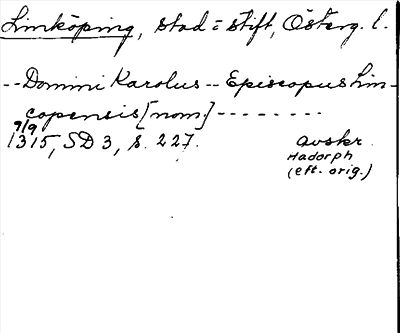 Linköping, stad = stift, Österg. l.
-- Domini Karolus -- Episcopus Lin-
copensis [nom.] --------
9/9
1315, SD 3, s. 227.
avskr.
Hadorph
(eft. orig.)